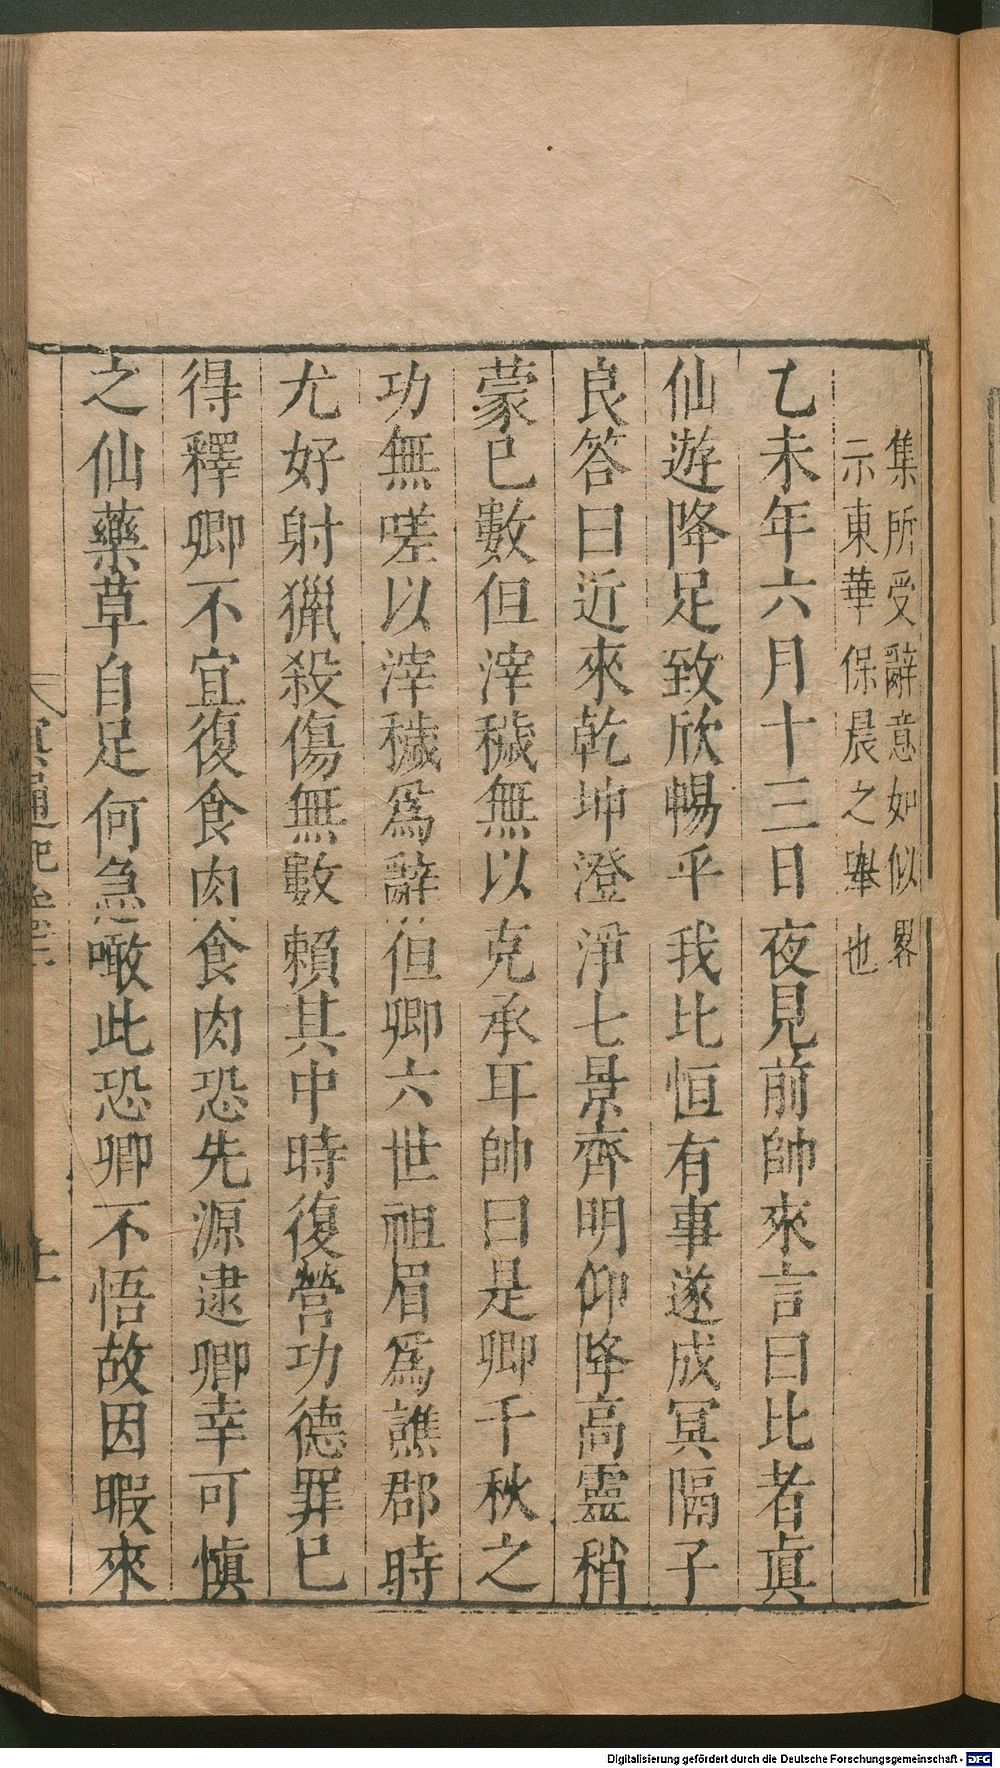 集所受辭意如似畧
示東華保晨之舉也
乙未年六月十三日夜見前帥來言曰比者眞
仙遊降足致欣暢乎我比恒有事遂成冥隔子
良答曰近來乾坤澄淨七景齊明仰降高靈稍
蒙已數但滓穢無以克承耳帥曰是卿千秋之
功無嗟以滓穢爲辭但卿六世祖眉爲譙郡時
尤好射獵殺傷無數賴其中時復營功德罪已
得釋卿不宜復食肉食肉恐先源逮卿幸可慎
之仙藥草自足何急噉此恐卿不悟故因暇來
Digitalisierung gefördert durch die Deutsche Forschungsgemeinschaft - DFG